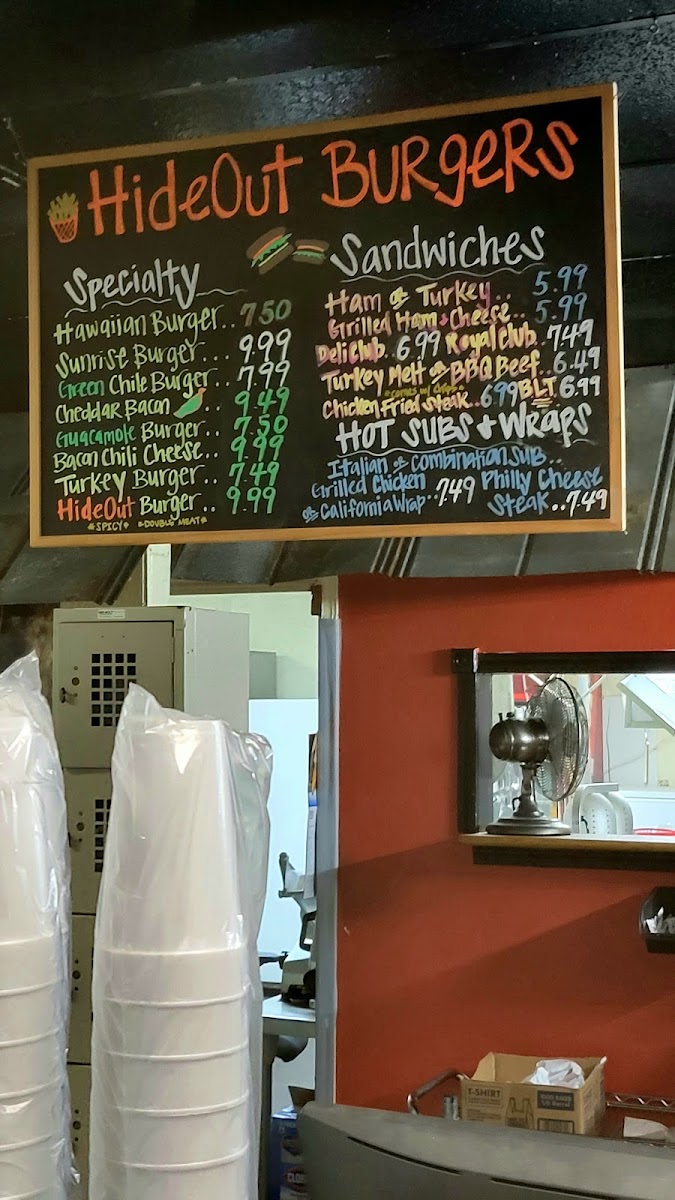 HideOut Burgers
Specialty
Hawaiian Burger.. 7.50
Sunrise Burger... 9.99
Green Chile Burger.. 7.99
Cheddar Bacon .. 9.49
Guacamole Burger.. 7.50
Bacon Chili Cheese.. 9.99
Turkey Burger.. 7.49
HideOut Burger.. 9.99
*SPICY* *DOUBLE MEAT*
Sandwiches
Ham or Turkey.. 5.99
Grilled Ham + Cheese.. 5.99
Deli Club.. 6.99 Royal Club.. 7.49
Turkey Melt or BBQ Beef.. 6.49
*comes w/ chips*
Chicken Fried Steak.. 6.99 BLT. 6.99
HOT SUBS + Wraps
Italian or Combination Sub..
Grilled Chicken
or California Wrap.. 7.49
Philly Cheese
Steak.. 7.49
T-SHIRT